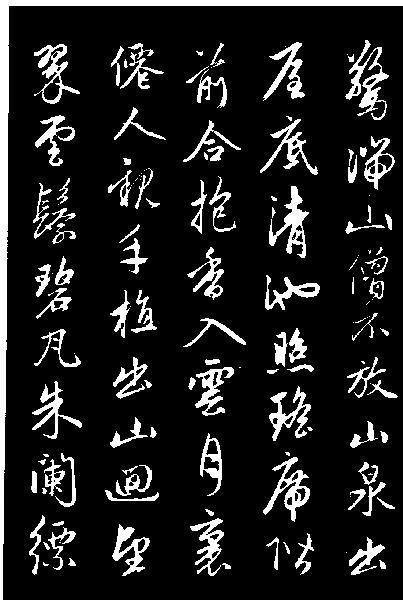 驚湍山僧不放山泉出
屋底清池照瑤席階
前合抱香入雲月裏
僊人親手植出山迴望
翠雲鬟碧瓦朱闌縹